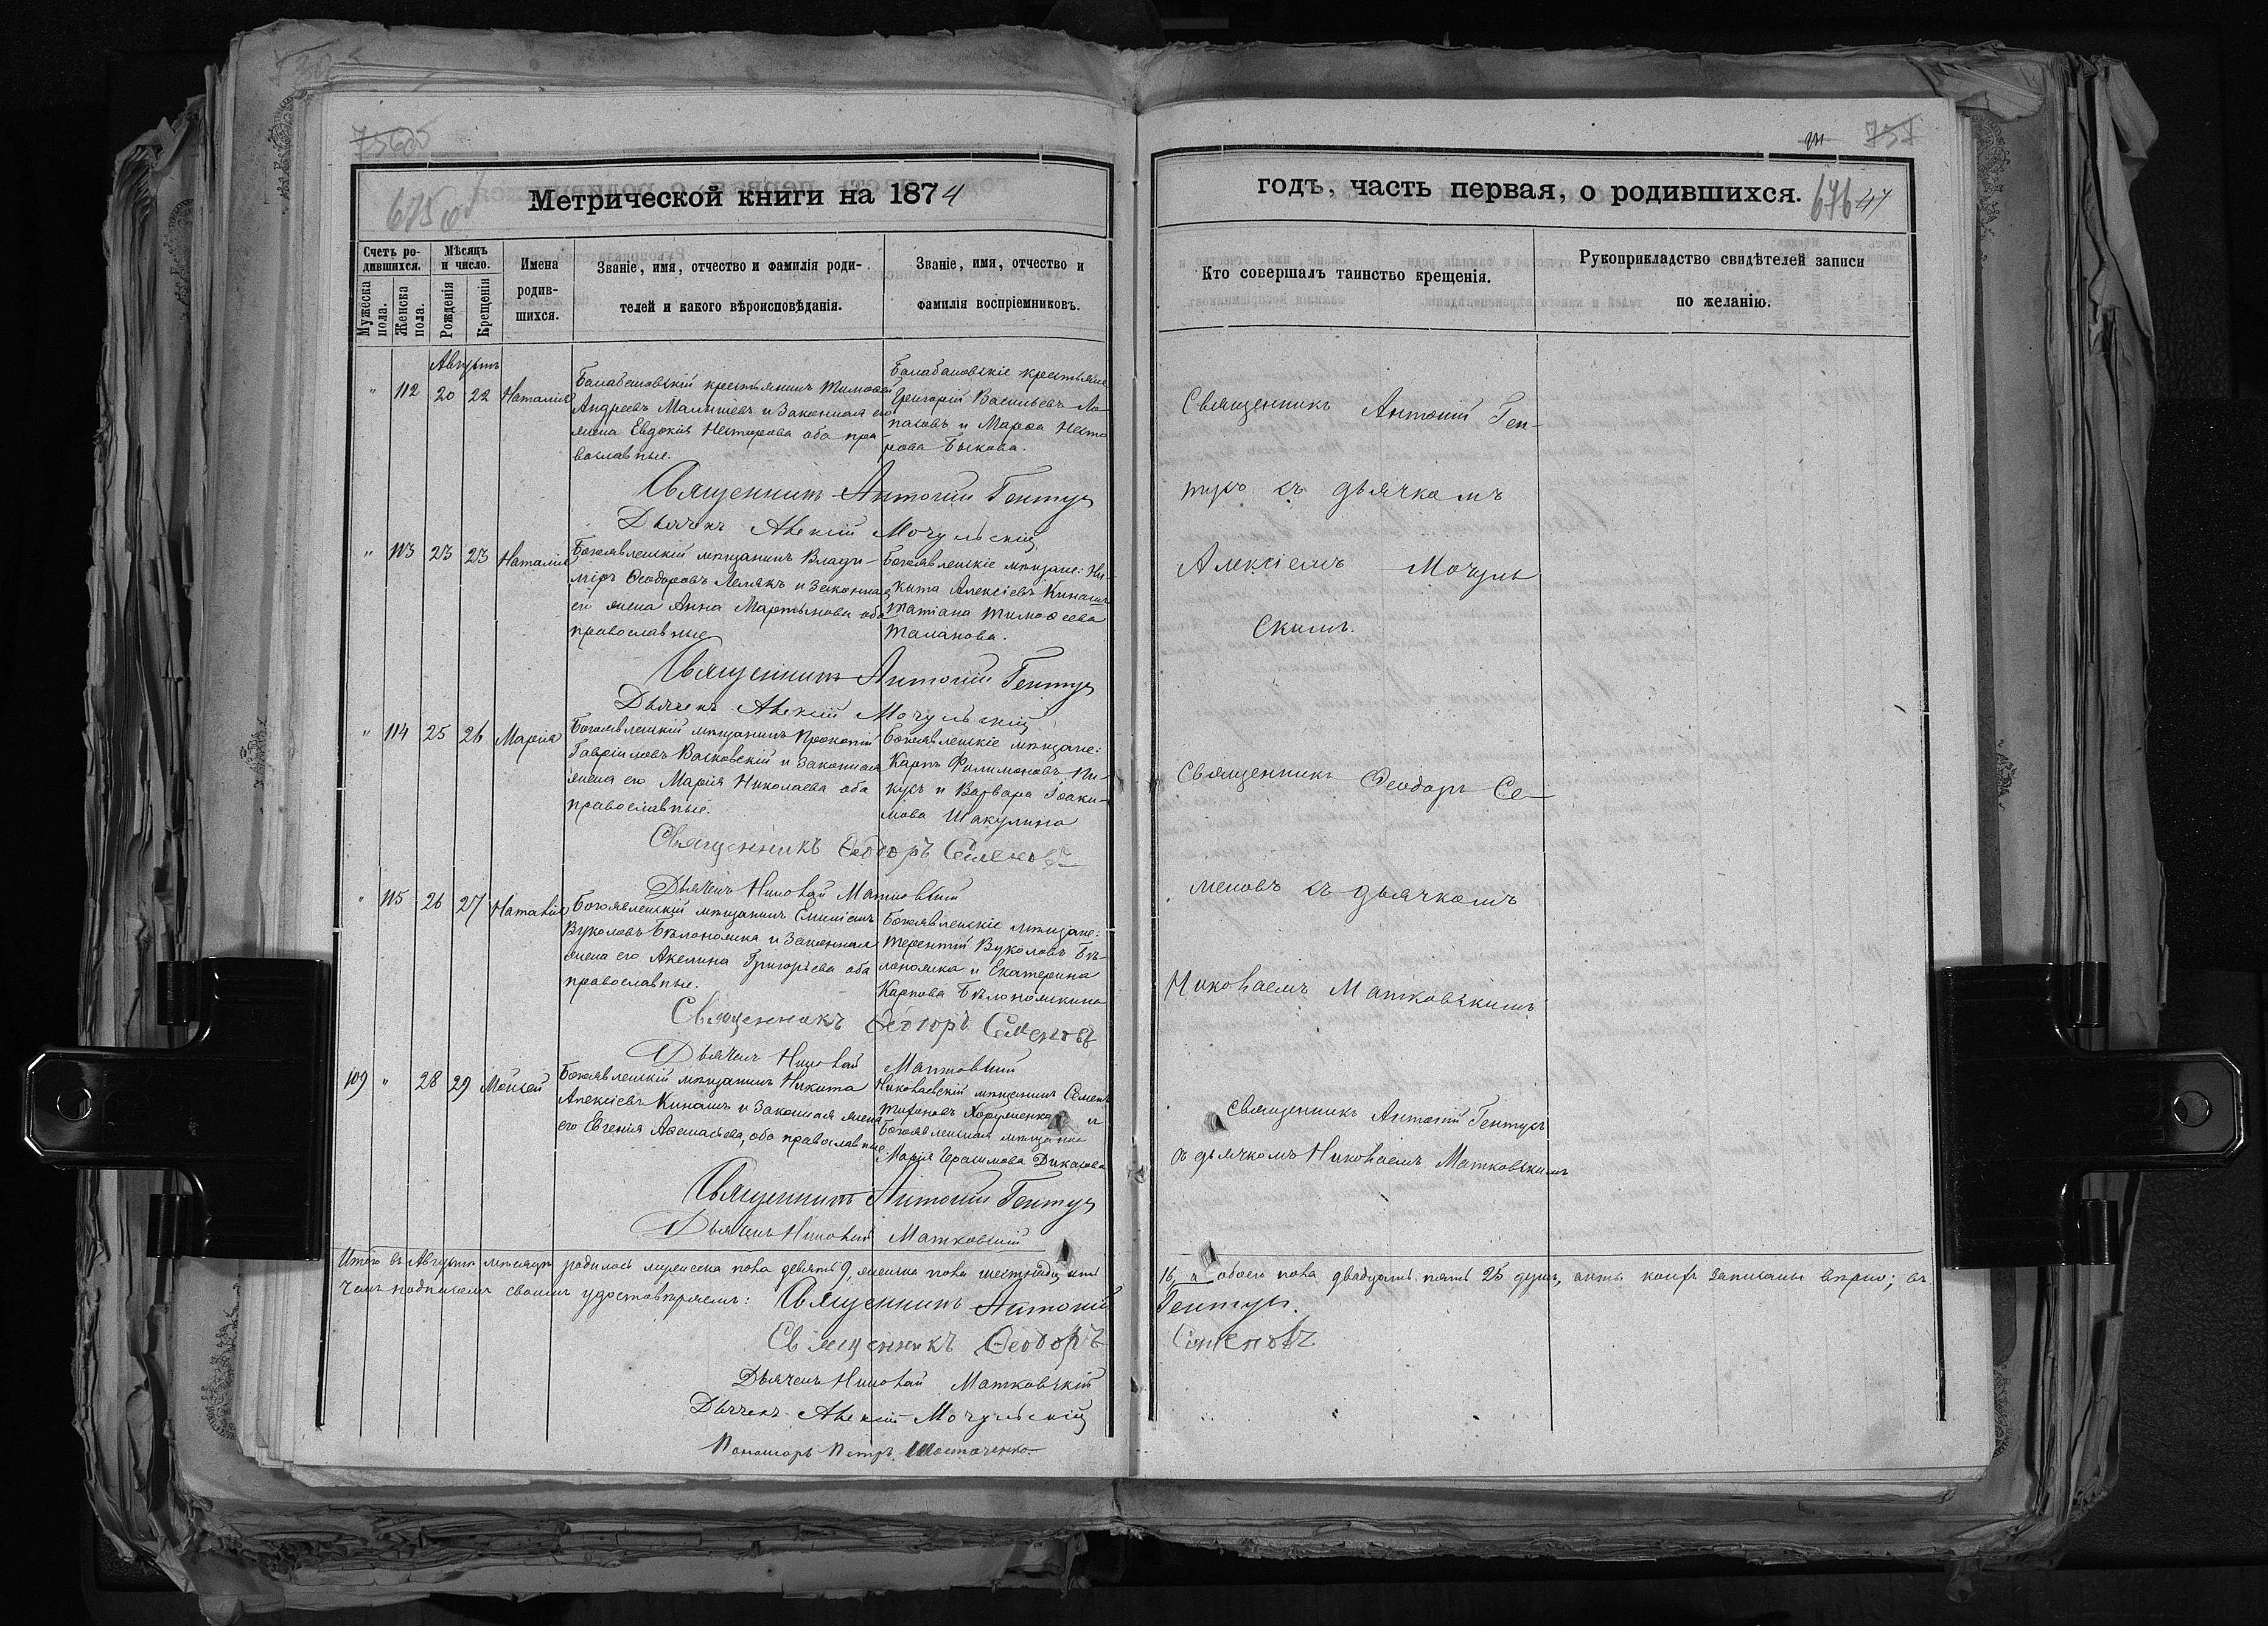 Метрической книги на 1874
675 об
Счетъ ро-
дившихся.
Мѣсяцъ
и число.
Мужеска
пола.
Женска
пола.
Рожденія
Крещенія
Имена
родив-
шихся.
Званіе, имя, отчество и фамилія роди-
телей и какого вѣроисповѣданія.
Званіе, имя, отчество и
фамилія воспріемниковъ.
Августъ
" 112 20 22 Наталія
Балабановскій крестьянинъ Тимоѳей
Андреевъ Малышевъ и законная его
жена Евдокія Несторова оба пра-
вославные.
Балабановскіе крестьяне
Григорій Васильевъ Ло
патовъ и Марѳа Несто
рова Быкова.
Священникъ Антоній Гентук
Дьячекъ Алексій Мочульскій
" 113 23 23 Наталія
Богоявленскій мѣщанинъ Влади-
міръ Ѳеодоровъ Лемякъ и законная
его жена Анна Мартынова оба
православные
Богоявленскіе мѣщане: Ни-
кита Алексіевъ Кинашъ
Татіана Тимоѳеева
Таланова.
Священникъ Антоній Гентук
Дьячекъ Алексій Мочульскій
" 114 25 26 Марія
Богоявленскій мѣщанинъ Прокопій
Гавріиловъ Васковскій и законная
жена его Марія Николаева оба
православные.
Богоявленскіе мѣщане:
Карпъ Филимоновъ Пи-
кусъ и Варвара Іоаки-
мова Шакулина
Священникъ Ѳеодоръ Семеновъ
Дьячекъ Николай Матковскій
" 115 26 27 Наталія
Богоявленскій мѣщанинъ Емиліанъ
Вуколовъ Бѣлоножка и законная
жена его Акелина Григорьева оба
православные.
Богоявленскіе мѣщане:
Терентій Вуколовъ Бѣ-
лоножка и Екатерина
Карпова Бѣлоножкина
Священникъ Ѳеодоръ Семеновъ
Дьячекъ Николай Матковскій
109 " 28 29 Моисей
Богоявленскій мѣщанинъ Никита
Алексіевъ Кинашъ и законная жена
его Евгенія Аѳанасьева, оба православные
Николаевскій мѣщанинъ Семенъ
Тихоновъ и
Богоявленская мѣщанка
Марія Герасимова Дикасова
Священникъ Антоній Гентук
Дьячекъ Николай Матковскій
Итого въ Августѣ мѣсяцѣ родилось мужеска пола девять 9, женска пола шестнадцать
чемъ подписомъ своимъ удостовѣряемъ: Священникъ Антоній
Священникъ Ѳеодоръ
Дьячекъ Николай Матковскій
Дьячекъ Алексій Мочульскій
Пономарь Петръ Шостаченко
годъ, часть первая, о родившихся.
676 47
Кто совершалъ таинство крещенія.
Рукоприкладство свидѣтелей записи
по желанію.
Священникъ Антоній Ген-
тукъ съ дьячкомъ
Алексіемъ Мочуль
скимъ.
Священникъ Ѳеодоръ Се-
меновъ съ дьячкомъ
Николаемъ Матковскимъ
Священникъ Антоній Гентукъ
съ дьячкомъ Николаемъ Матковскимъ
16, а обоего пола двадцать пять 25 душъ, акты коихъ записаны вѣрно; въ
Гентукъ.
Семеновъ